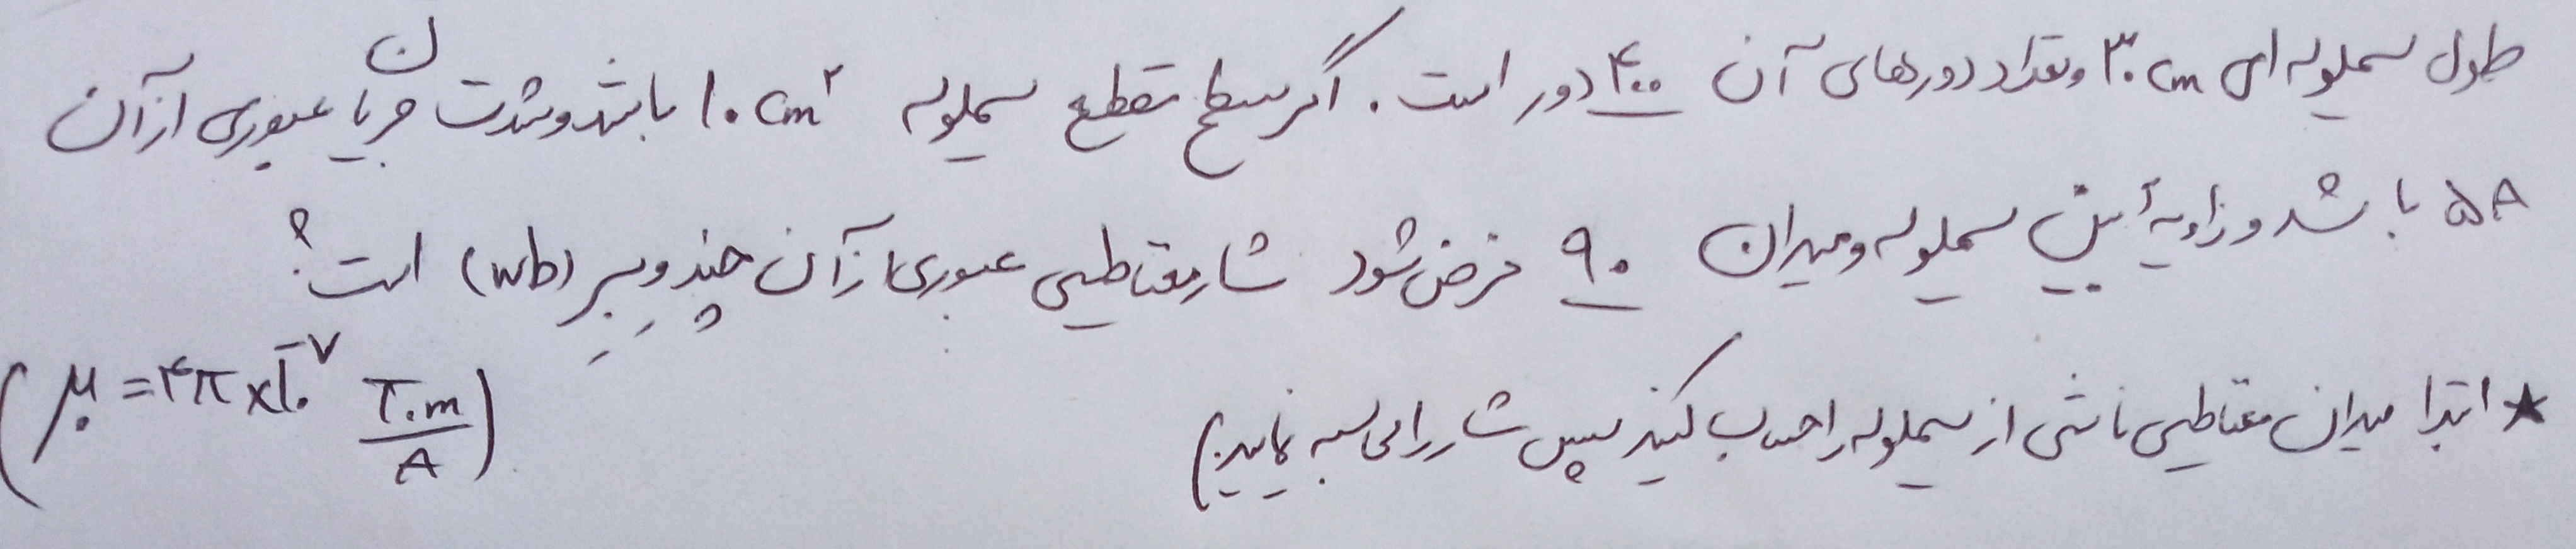 طول سیملوله ای ۳۰ cm وتعداد دورهای آن ۴۰۰ دور است. اگر سطح مقطع سیملوله ۱۰ cm² باشد و شدت جریان عبوری از آن
۵A باشد و زاویهٔ بین سیملوله و میدان ۹۰ فرض شود شار مغناطیسی عبوری از آن چند وِبِر (wb) است؟
★ ابتدا میدان مغناطیسی ناشی از سیملوله را حساب کنید سپس شار را محاسبه نمایید.)
(μ₀ = ۴π × ۱۰⁻⁷ T.m/A)